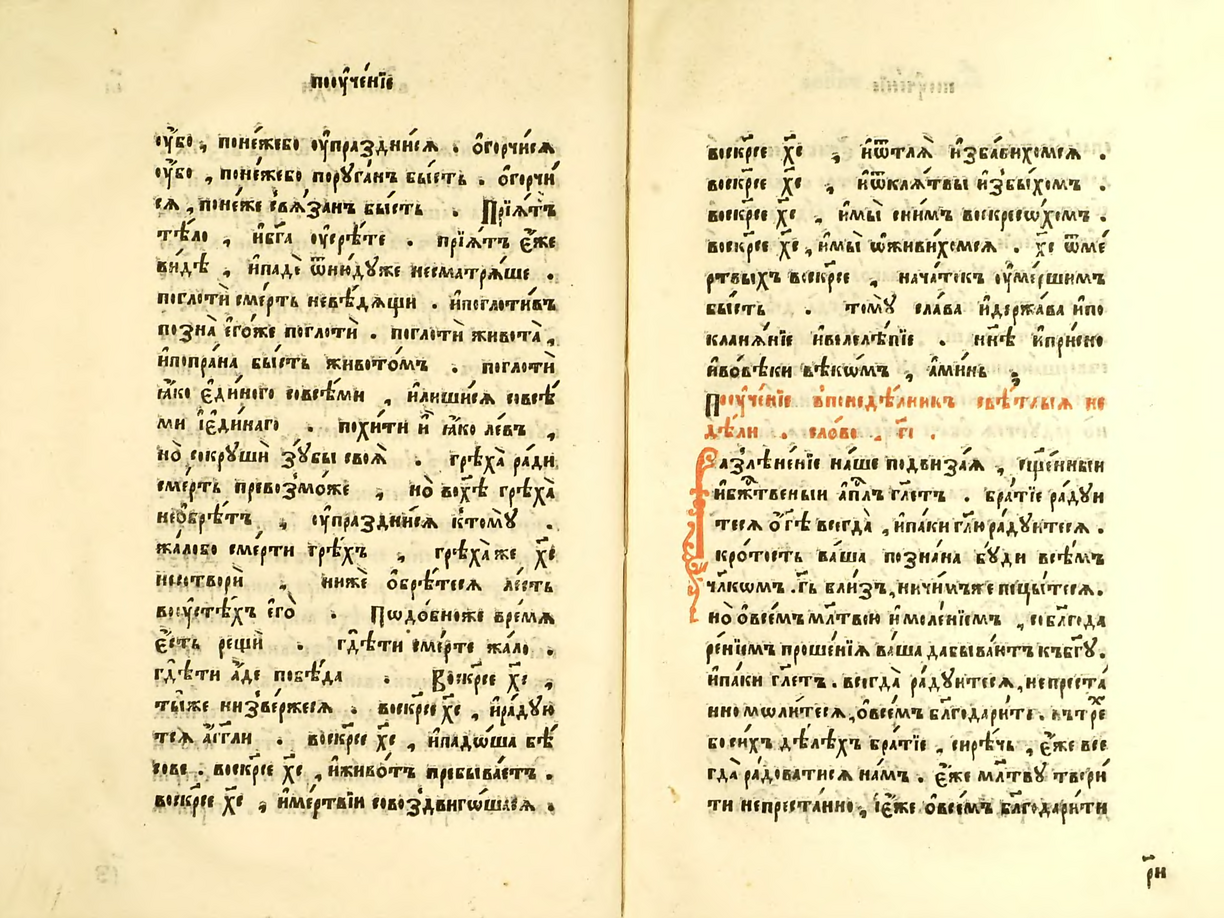 поꙋче́нїе
ᲂу҆́бо , поне́жебо ᲂу҆пра́зднисѧ . о҆горчи́сѧ
ᲂу҆́бо , поне́жебо порꙋ́ганъ бы́сть . о҆горчи́
сѧ , поне́же свѧ́занъ бы́сть . Прїѧ́тъ
тѣ́ло , и҆бг҃а ᲂу҆срѣ́те . прїѧ́тъ є҆́же
ви́дѣ , и҆падѐ ѿню́дꙋже несматрѧ́ше .
поглотѝ сме́рть невѣ́дѧщи . и҆поглоти́въ
позна̀ є҆го́же поглотѝ . поглотѝ живота̀ ,
и҆попра́на бы́сть живото́мъ . поглотѝ
ꙗ҆́ко є҆ди́ного совсѣ́ми , и҆лиши́сѧ совсѣ́
ми і҆є҆ди́наго . похи́ти и҆̀ ꙗ҆́ко ле́въ ,
но̀ сокрꙋшѝ зꙋ́бы своѧ̀ . грѣха̀ ра́ди
сме́рть превозмо́же , но̀ вохѣ̀ грѣха̀
неѡбрѣ́тъ , ᲂу҆пра́зднисѧ ктомꙋ̀ .
жа́лобо сме́рти грѣ́хъ , грѣха̀же хс҃
несотворѝ , нижѐ ѡ҆брѣ́тесѧ ле́сть
воᲂу҆стѣ́хъ є҆го̀ . Пѡдо́бноже вре́мѧ
є҆́сть рещѝ . гдѣ́ти сме́рте жа́ло .
гдѣ́ти а҆́де побѣ́да . Воскр҃се хс҃ ,
ты́же низве́ржесѧ . воскр҃се хс҃ , и҆ра́дꙋю
тсѧ а҆́гг҃ли . воскр҃се хс҃ , и҆падѡ́ша бѣ́
сове . воскр҃се хс҃ , и҆живо́тъ пребыва́етъ .
воскр҃се хс҃ , и҆ме́ртвїи совоздвиго́шасѧ .
воскр҃се хс҃ , и҆ѿтлѧ̀ и҆зба́вихомсѧ .
воскр҃се хс҃ , и҆ѿклѧ́твы и҆збы́хомъ .
воскр҃се хс҃ , и҆мы̀ сни́мъ воскресо́хомъ .
воскр҃се хс҃ , и҆мы̀ ѡ҆живи́хомсѧ . хс҃ ѿме́
ртвыхъ воскр҃се , нача́токъ ᲂу҆ме́ршимъ
бы́сть . томꙋ̀ сла́ва и҆держа́ва и҆по
кланѧ́нїе и҆велелѣ́пїе . нн҃ѣ и҆при́сно
и҆вовѣ́ки вѣкѡ́мъ , а҆ми́нь ;
Поꙋче́нїе впонедѣ́лникъ свѣ́тлыѧ не
дѣ́ли . сло́во . г҃і .
Разлѣне́нїе на́ше подвиза́ѧ , сщ҃е́нныи
и҆бж҃твеныи а҆п҃лъ гл҃етъ . бра́тїе ра́дꙋи
тесѧ ѡ҆гд҃ѣ всегда̀ , и҆па́ки гл҃ю ра́дꙋитесѧ .
кро́тость ва́ша позна́на бꙋ́ди всѣ́мъ
чл҃кѡмъ . гд҃ь бли́зъ , ничи́мъже пецы́тесѧ .
но̀ ѡ҆все́мъ мл҃твою и҆моле́нїемъ , собл҃года
ре́нїемъ проше́нїѧ ва́ша дабыва́ютъ къбг҃ꙋ .
и҆па́ки гл҃етъ . всегда̀ ра́дꙋитесѧ , непреста́
нно мѡли́тесѧ , ѡ҆все́мъ бл҃года́рите . нътре
бо си́хъ дѣ́лѣхъ бра́тїе , си́рѣчь , є҆́же все
гда̀ ра́доватисѧ на́мъ . є҆́же мл҃твꙋ твори́
ти непреста́нно , і҆є҆́же ѡ҆все́мъ бл҃годари́ти
р҃н